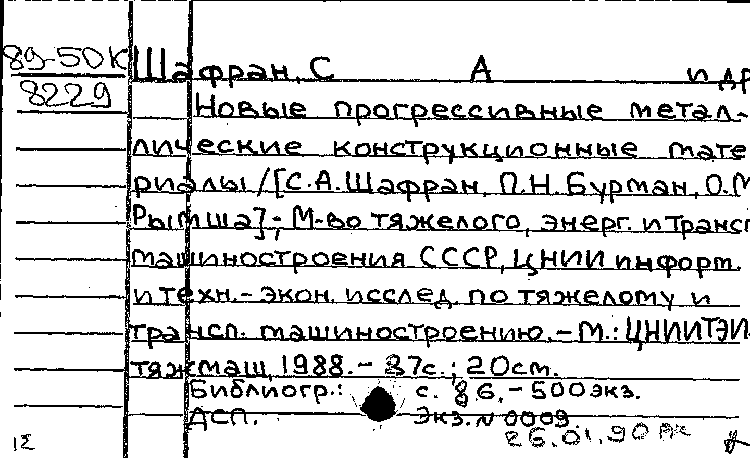 89-50К
8229
Шафран, С А и др
Новые прогрессивные метал-
лические конструкционные мате
риалы / [С.А. Шафран, П.Н. Бурман, О.М
Рымша]; М-во тяжелого, энерг. и трансп
машиностроения СССР, ЦНИИ информ.
и техн.-экон. исслед. по тяжелому и
трансп. машиностроению. – М.: ЦНИИТЭИ
тяжмаш, 1988. – 87с.; 20см.
Библиогр.: с. 86. – 500экз.
ДСП. Экз. N 0009
26.01.90